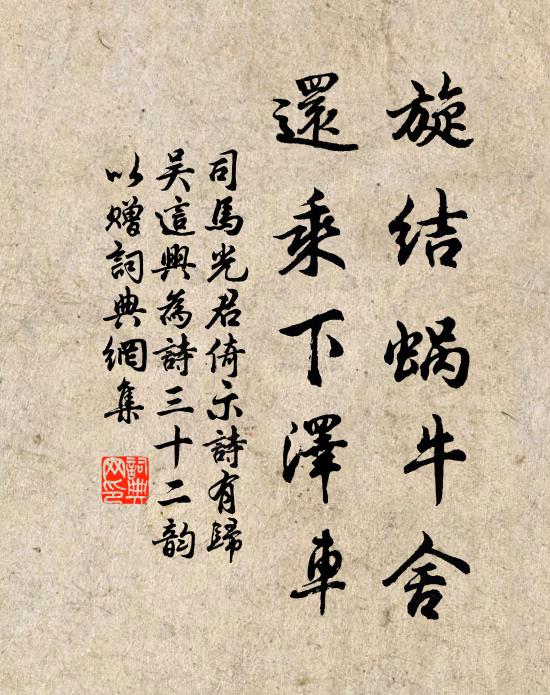 旋结蜗牛舍
還乘下澤車
司馬光君倚示詩有歸
吴這興為詩三十二韵
以贈詞典網集
詞典网印